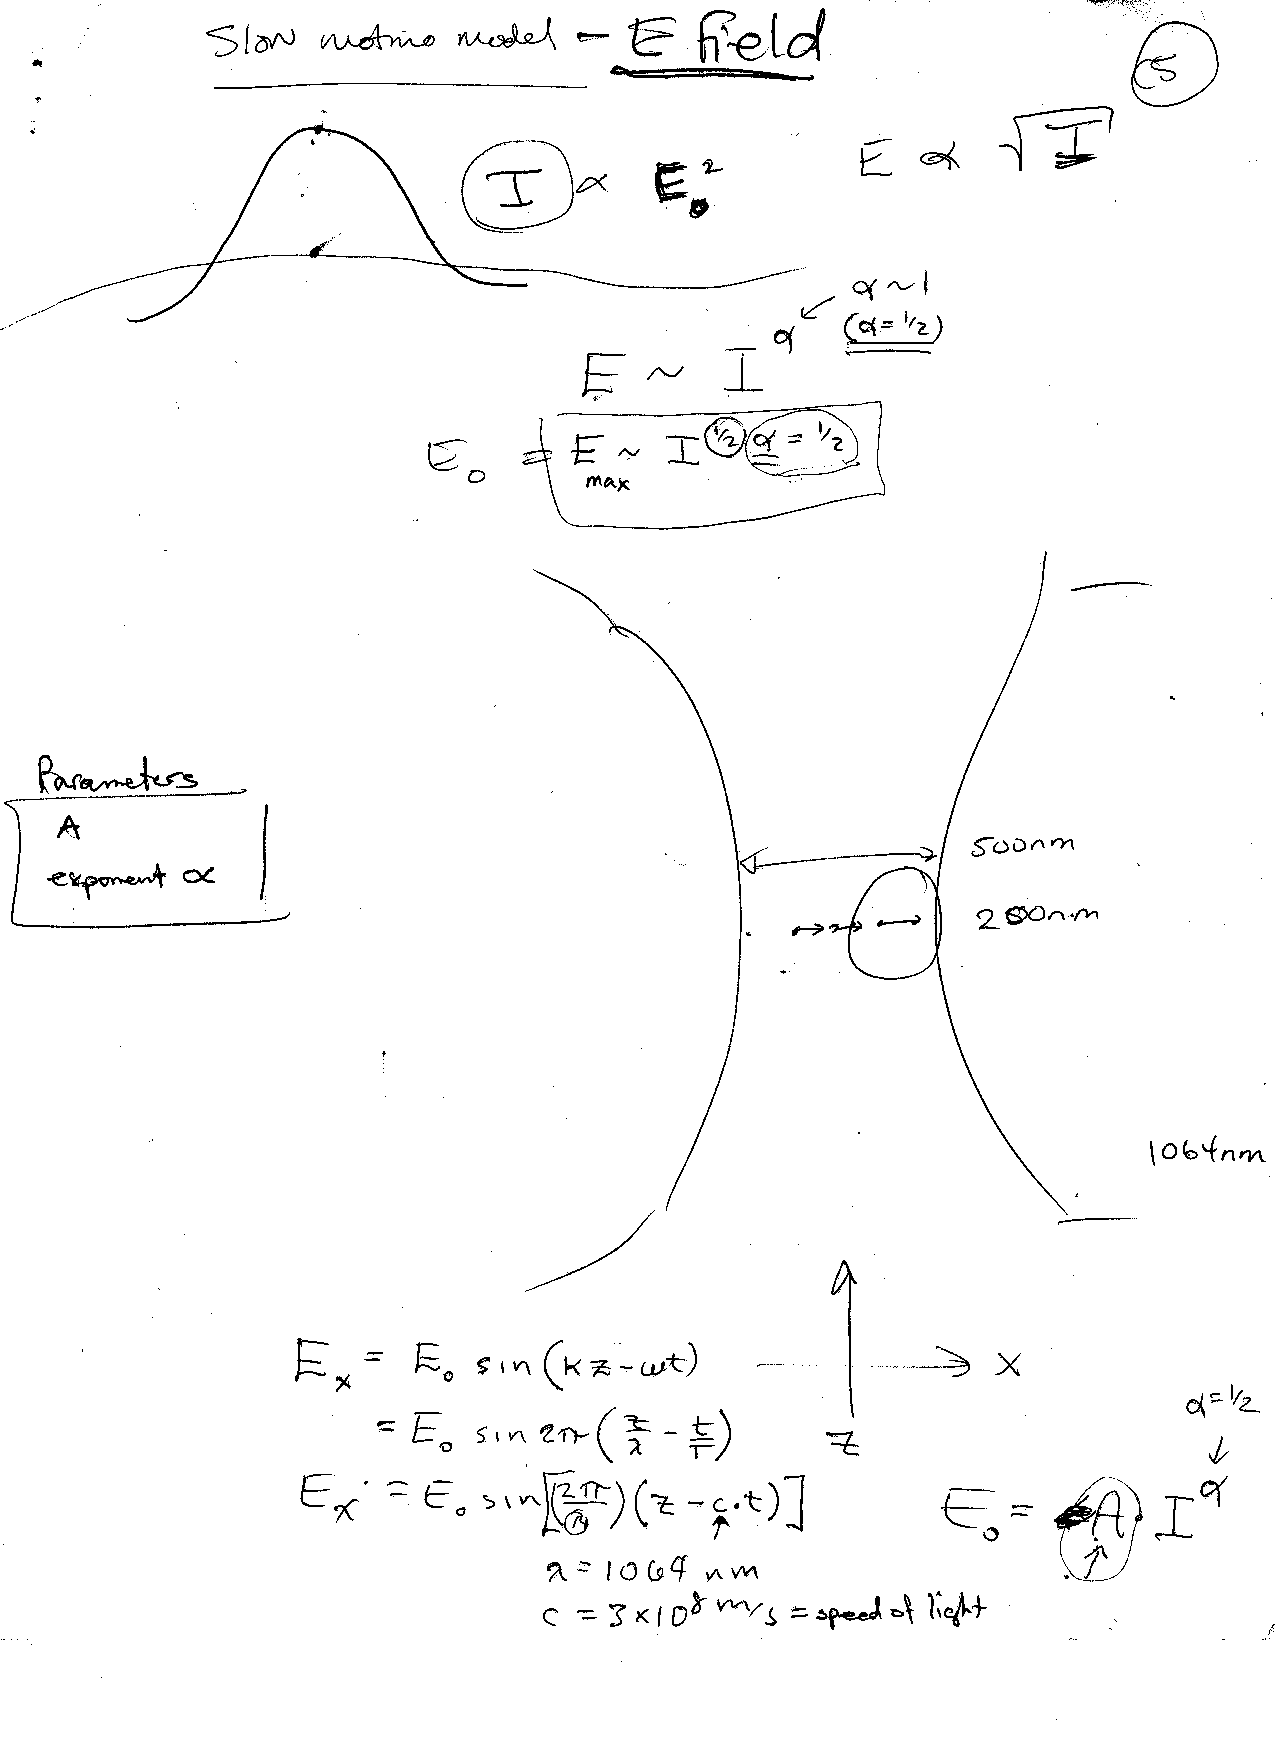 Slow motino model - E field
5
I ∝ E₀²
E ∝ √I
α ~ 1
(α = 1/2)
E ~ I^α
E₀ = E max ~ I^1/2 α = 1/2
Parameters
A
exponent α
500nm
200nm
1064nm
E_x = E₀ sin(kz - ωt)
x
z
= E₀ sin 2π (z/λ - t/T)
α = 1/2
E_x = E₀ sin[(2π/λ)(z - c·t)]
E₀ = A I^α
λ = 1064 nm
c = 3×10⁸ m/s = speed of light